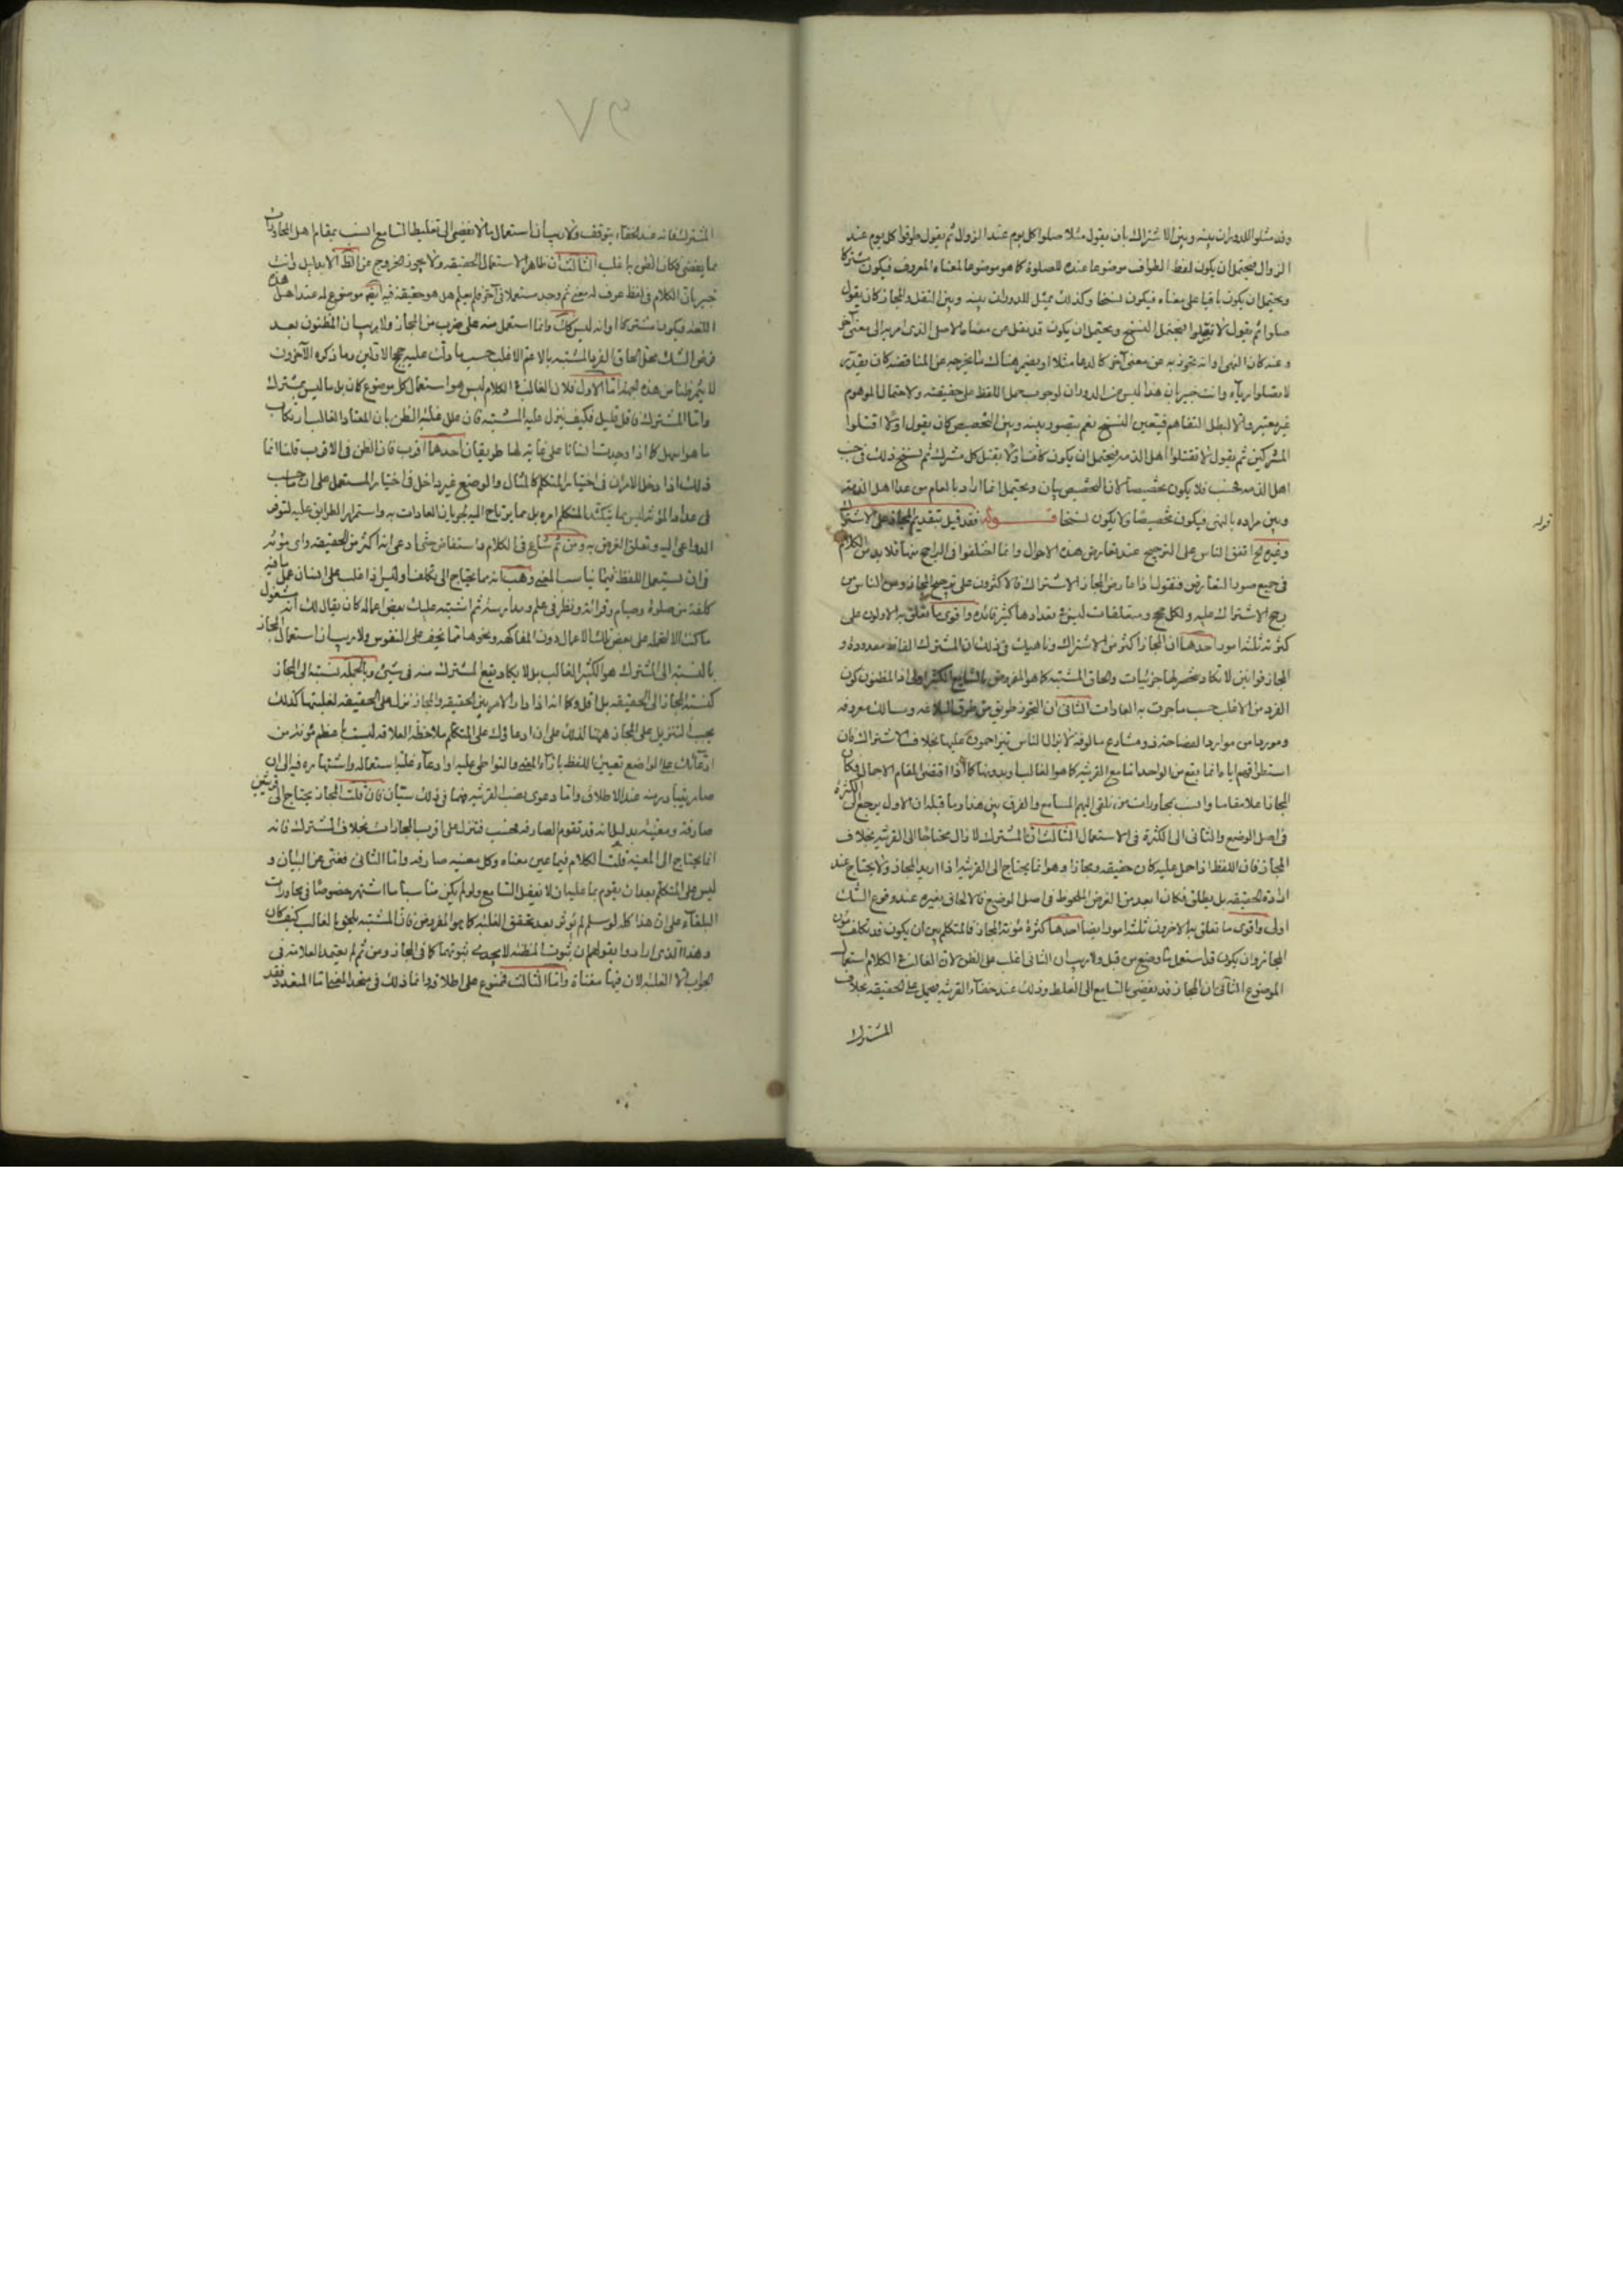 وقد مثلوا للدوران بينه وبين الاشتراك بان يقول مثلا صلوا كل يوم عند الزوال ثم يقول طوفوا كل يوم عند
الزوال فيحتمل ان يكون لفظ الطواف موضوعا عنده للصلوة كما هو موضوع لمعناه المعروف فيكون مشتركا
ويحتمل ان يكون باقيا على معناه فيكون نسخا وكذلك مثيل للدوران بينه وبين النقل والمجاز كان يقول
صلوا ثم يقول لا تصلوا فيحتمل النسخ ويحتمل ان يكون قد نقل من معناه الاصلي الذي امر به الى معنى آخر
وعنه كان النهي او انه تجوز به عن معنى آخر كالدعا مثلا
لا تصلوا رياء وانت خبير بان هذا ليس من الدوران لوجوب حمل اللفظ على حقيقته ولا احتمال الموهوم
غير معتبر والا لبطل التفاهم فيتعين النسخ نعم يتصور بينه وبين التخصيص كان يقول اولا اقتلوا
المشركين ثم يقول لا تقتلوا اهل الذمة فيحتمل ان يكون كافا اولا بقتل كل مشرك ثم نسخ ذلك في حق
اهل الذمة فحسب فلا يكون تخصيصا لان التخصيص بيان ويحتمل انما اراد بالعام من عدا اهل الذمة
وبين مراده بالنهي فيكون تخصيصا ولا يكون نسخا قوله فقد قيل بتقديم المجاز على الاشتراك
وغيره لما اتفق الناس على الترجيح عند تعارض هذه الاحوال وانما اختلفوا في الراجح منها فلا بد من الكلام
في جميع صور التعارض فنقول اذا عارض المجاز الاشتراك فالاكثرون على ترجيح المجاز ومن الناس من
رجح الاشتراك عليه ولكل حجج ومتعلقات ليس في تعدادها كثير فائدة واقوى ما تعلق به الاولون على
كثرته ثلثة امور احدها ان المجاز اكثر من الاشتراك وناهيك في ذلك ان المشترك الفاظ معدودة و
المجاز قوانين لا تكاد تنحصر لها جزئيات والحاق المشتبه كما هو المفروض بالشايع الكثير اولى اذ المظنون كون
الفرد من الاغلب حسب ما جرت به العادات الثاني ان التجوز طريق من طرق البلاغة ومسالك معروفة
ومورد من موارد الفصاحة ومشارع مالوفة لا يزال الناس يتزاحمون عليها بخلاف الاشتراك فان
استطراقهم اياه انما يقع من الواحد اما مع القرينة كما هو الغالب او بدونها كما اذا اقتضى المقام الاجمال فكان
المجاز اعلا مقاما وانسب بمحاورات من تلقى اليهم المسامع والفرق بين هذا وما قبله ان الاول يرجع الى الكثرة
في اصل الوضع والثاني الى الكثرة في الاستعمال الثالث ان المشترك لا زال محتاجا الى القرينة بخلاف
المجاز فان اللفظ اذا حمل عليه كان حقيقة ومجازا وهو انما يحتاج الى القرينة اذا اريد المجاز ولا يحتاج عند
ارادة الحقيقة بل يطلق فكان ابعد من الغرض الملحوظ في اصل الوضع فالالحاق بغيره عند وقوع الشك
اولى واقوى ما تعلق به الاخرون ثلثة امور ايضا احدها كثرة مؤنة المجاز فالمتكلم بين ان يكون قد تكلف مؤن
المجاز وان يكون قد استعمل ما وضع من قبل ولا ريب ان الثاني اغلب على الظن لان الغالب في الكلام استعمال
الموضوع الثاني ان المجاز قد يفضي بالسامع الى الغلط وذلك عند خفاء القرينة فيحمل على الحقيقة بخلاف
المشترك
قوله
المشترك فانه عند الخفاء يتوقف ولا ريب ان استعمال ما لا يفضي الى تغليط السامع انسب بمقام اهل المحاورات
مما يفضي فكان الظن به اغلب الثالث ان ظاهر الاستعمال الحقيقة ولا يجوز الخروج عن الظ الا بدليل وانت
خبير بان الكلام في لفظ عرف له معنى ثم وجد مستعملا في آخر فلم يعلم هل هو حقيقة فيه ايضم موضوع له عند اهل هذه
اللغة فيكون مشتركا او انه ليس كك وانما استعمل منه على ضرب من المجاز ولا ريب ان المظنون بعد
فرض الشك محل الحاق الفرد المشتبه بالاعم الاغلب حسب ما دلت عليه حجج الاولين وما ذكره الآخرون
لا يثمر ظنا من هذه الجهة اما الاول فلان الغالب في الكلام ليس هو استعمال كل موضوع كان بل ما ليس بمشترك
واما المشترك فاقل قليل فكيف ينزل عليه المشتبه فان علل غلبة الظن بان المعتاد الغالب ارتكاب
ما هو اسهل كما اذا وجدت انسانا على غاية لها طريقان احدهما اقرب فان الظن في الاقرب قلنا انما
ذلك اذا دخل الامران في اختيار المتكلم كالمثال والوضع غير داخل في اختيار المستعمل على ان
في عداد المؤنة ليس مما يتكثر المتكلم امره بل مما يرتاح اليه لجريان العادات به واستمرار الطرايق عليه لتوفر
الدواعي اليه وتعلق الغرض به ومن ثم شاع في الكلام واستفاض حتى ادعى انه اكثر من الحقيقة واي مؤنة
في ان يستعمل اللفظ فيما يناسب المعنى وهب انه مما يحتاج الى تكلف اوليس اذا غلب على انسان عمل ما فيه
كلفة من صلوة وصيام وقرائة ونظر في علم ومدارسة ثم اشتبه عليك بعض اعماله كان يقال لك انه مشغول
ما كنت الا لتحمله على بعض تلك الاعمال دون المفاكهة ونحوها مما يخف على النفوس ولا ريب ان استعمال المجاز
بالنسبة الى المشترك هو الكثير الغالب بل لا يكاد يقع المشترك منه في شيء وبالجملة نسبته الى المجاز
كنسبة المجاز الى الحقيقة بل اقل وكما انه اذا دار الامر بين الحقيقة والمجاز نزل على الحقيقة لغلبتها كذلك
يجب التنزيل على المجاز ههنا لذلك على ان ادعاؤك على المتكلم ملاحظة العلاقة ليست باعظم مؤنة من
ادعائك على الواضع تعيين اللفظ بازاء المعنى والتواطي عليه وادعاء غلبة استعماله واشتهاره فيه الى ان
صار يتبادر منه عند الاطلاق واما دعوى نصب القرينة فهما في ذلك سيّان فان قلت المجاز يحتاج الى قرينتين
صارفة ومعينة بدليل انه قد تقوم الصارفة فحسب فتنزل على اقرب المجازات بخلاف المشترك فانه
انما يحتاج الى المعينة قلت الكلام فيما عين معناه وكل معينة صارفة واما الثاني فغنى عن البيان و
ليس على المتكلم بعد ان يقوم بما عليه ان لا يغفل السامع ولو لم يكن مناسبا ما اشتهر خصوصا في محاورات
البلغاء على ان هذا كله لو سلم لم يؤثر بعد تحقق الغلبة كما هو المفروض فان المشتبه يلحق بالغالب كيف كان
وهذا الذي ارادوا بقولهم ان ثبوت المظنة لا يجدي ثبوتهما كما في المجاز ومن ثم لم يعتمد العلامة في
الجواب الا الغلبة لان فيها مغناة واما الثالث فممنوع على اطلاقه وانما ذلك في متحد المعنى اما المتعدد فقد